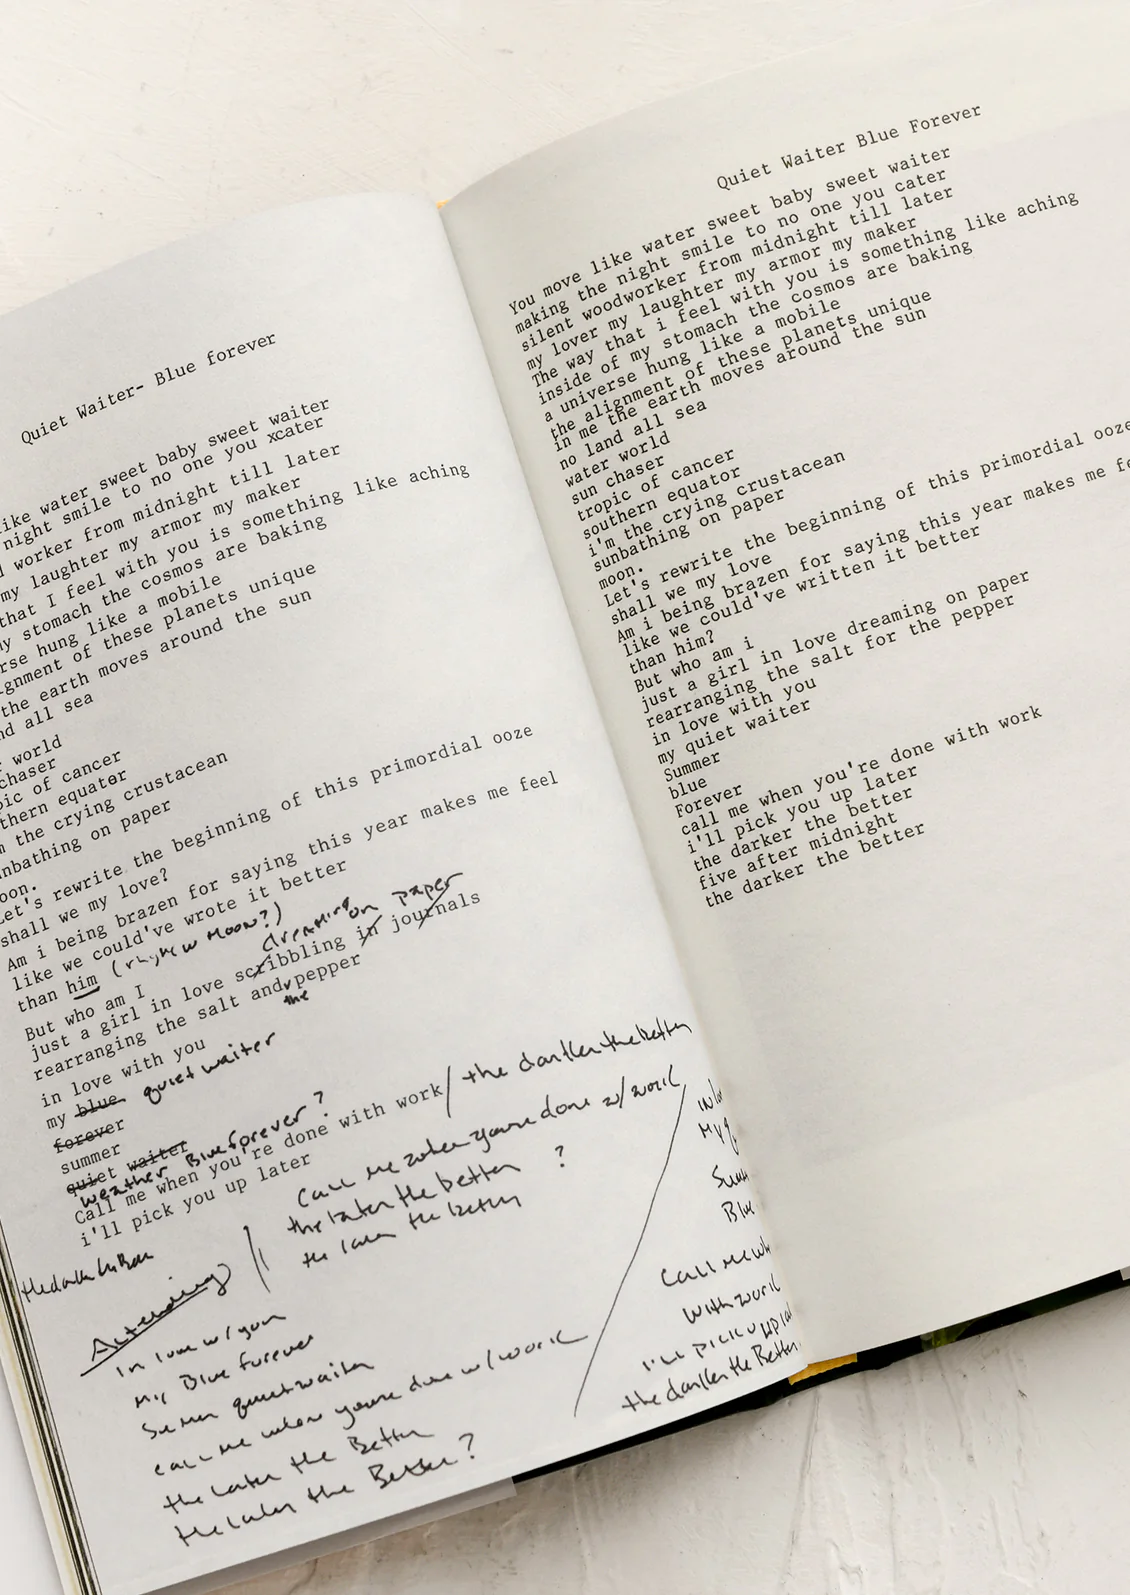 Quiet Waiter- Blue forever
like water sweet baby sweet waiter
night smile to no one you xcater
worker from midnight till later
my laughter my armor my maker
that I feel with you is something like aching
my stomach the cosmos are baking
rse hung like a mobile
ignment of these planets unique
the earth moves around the sun
nd all sea
world
chaser
pic of cancer
thern equator
the crying crustacean
unbathing on paper
oon.
Let's rewrite the beginning of this primordial ooze
shall we my love?
Am i being brazen for saying this year makes me feel
like we could've wrote it better
than him
dreaming on paper
But who am I
just a girl in love scribbling in journals
rearranging the salt and pepper
the
in love with you
my blue quiet waiter
forever
summer
quiet waiter
weather Blue forever?
Call me when you're done with work / the darker the better
i'll pick you up later
Call me when youre done w/work
the later the better ?
the later the better
in love w/you
my Blue forever
quiet waiter
call me when youre done w/work
the later the Better
the later the Better?
My
Blue
Call me wh
with work
I'll pick u up la
the darker the Better
Quiet Waiter Blue Forever
You move like water sweet baby sweet waiter
making the night smile to no one you cater
silent woodworker from midnight till later
my lover my laughter my armor my maker
The way that i feel with you is something like aching
inside of my stomach the cosmos are baking
a universe hung like a mobile
the alignment of these planets unique
in me the earth moves around the sun
no land all sea
water world
sun chaser
tropic of cancer
southern equator
i'm the crying crustacean
sunbathing on paper
moon.
Let's rewrite the beginning of this primordial ooze
shall we my love
Am i being brazen for saying this year makes me fe
like we could've written it better
than him?
But who am i
just a girl in love dreaming on paper
rearranging the salt for the pepper
in love with you
my quiet waiter
Summer
blue
Forever
call me when you're done with work
i'll pick you up later
the darker the better
five after midnight
the darker the better